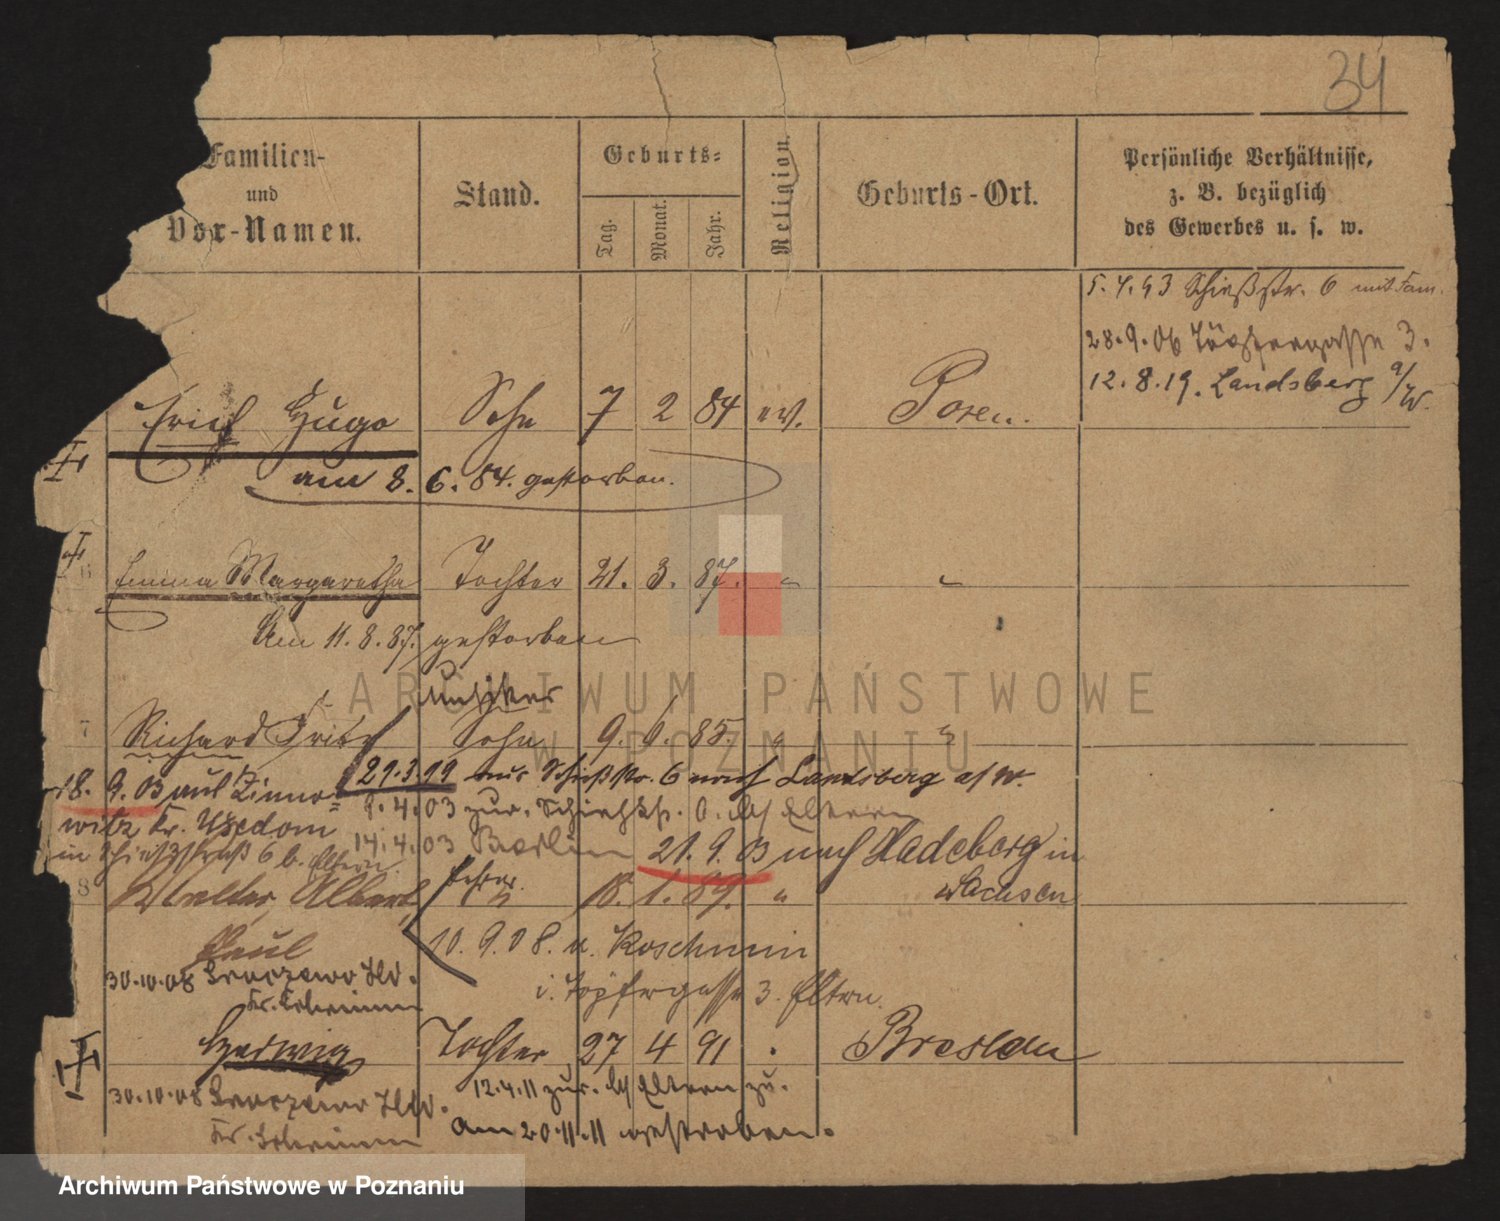 34
Familien- und Vor-Namen.
Stand.
Geburts-
Tag.
Monat.
Jahr.
Religion.
Geburts-Ort.
Persönliche Verhältnisse,
z. B. bezüglich
des Gewerbes u. s. w.
Schießstr. 6 mit Fam.
28.9.06 Töpfergasse 3.
12.8.19. Landsberg a/W.
Erich Hugo Sohn 7 2 84 ev. Posen.
am 8.6.84. gestorben.
Emma Margaretha Tochter 21. 3. 87. " "
Am 11.8.87. gestorben
7 Richard Fritz Sohn 9. 85. " "
29.3.99 aus Schießstr. 6 nach Landsberg a/W.
18.9.03 auf Zinno-
witz Kr. Usedom
in Schießstraß 6 b. Eltern
8.4.03 zur. Schießstr. 6. bei Eltern
14.4.03 Berlin
21.9.03 nach Radeberg in
Sachsen
8 Walter, Albert, 18. 1. 89. "
Paul
10.9.08. v. Koschmin
i. Töpfergasse 3. Eltern.
30.10.08
Hedwig Tochter 27 4 91 Breslau
30.10.08
12.4.11 zur. bei Eltern zu.
am 20.11.11 gestorben.
ARCHIWUM PAŃSTWOWE
W POZNANIU
Archiwum Państwowe w Poznaniu